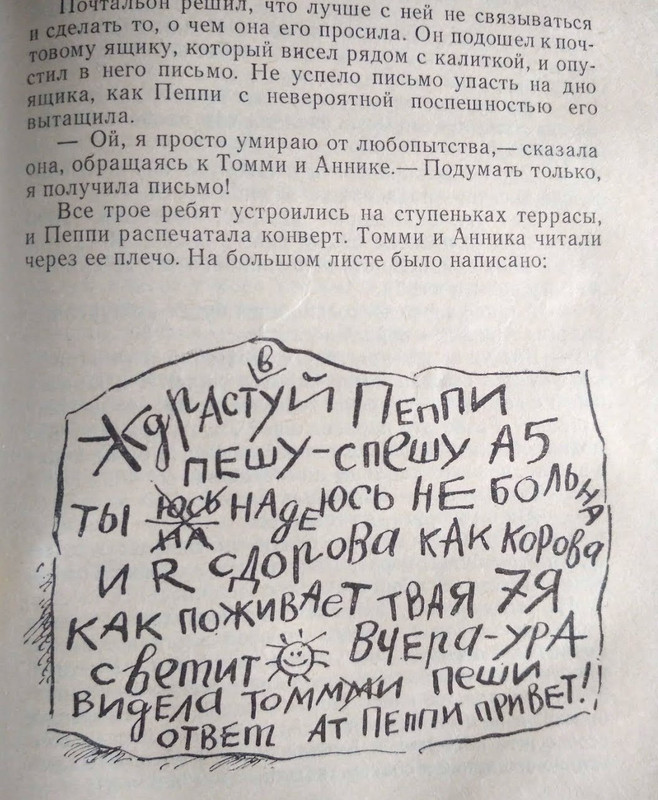 Почтальон решил, что лучше с ней не связываться
и сделать то, о чем она его просила. Он подошел к поч-
товому ящику, который висел рядом с калиткой, и опу-
стил в него письмо. Не успело письмо упасть на дно
ящика, как Пеппи с невероятной поспешностью его
вытащила.
— Ой, я просто умираю от любопытства,— сказала
она, обращаясь к Томми и Аннике.— Подумать только,
я получила письмо!
Все трое ребят устроились на ступеньках террасы,
и Пеппи распечатала конверт. Томми и Анника читали
через ее плечо. На большом листе было написано:
в
ЖдрАстуй ПЕппи
пЕШУ-спеШУ А5
ТЫ ЮСЬ НАдЕЮСЬ НЕ БОЛЬНА
НА
И R сдорова как корова
КАК ПОЖИВАеТ ТВАЯ 7Я
светит ВЧЕРА-УРА
ВИдЕЛА ТОММжи пеши
ОТВЕТ АТ ПЕппи ПРИВЕТ!!